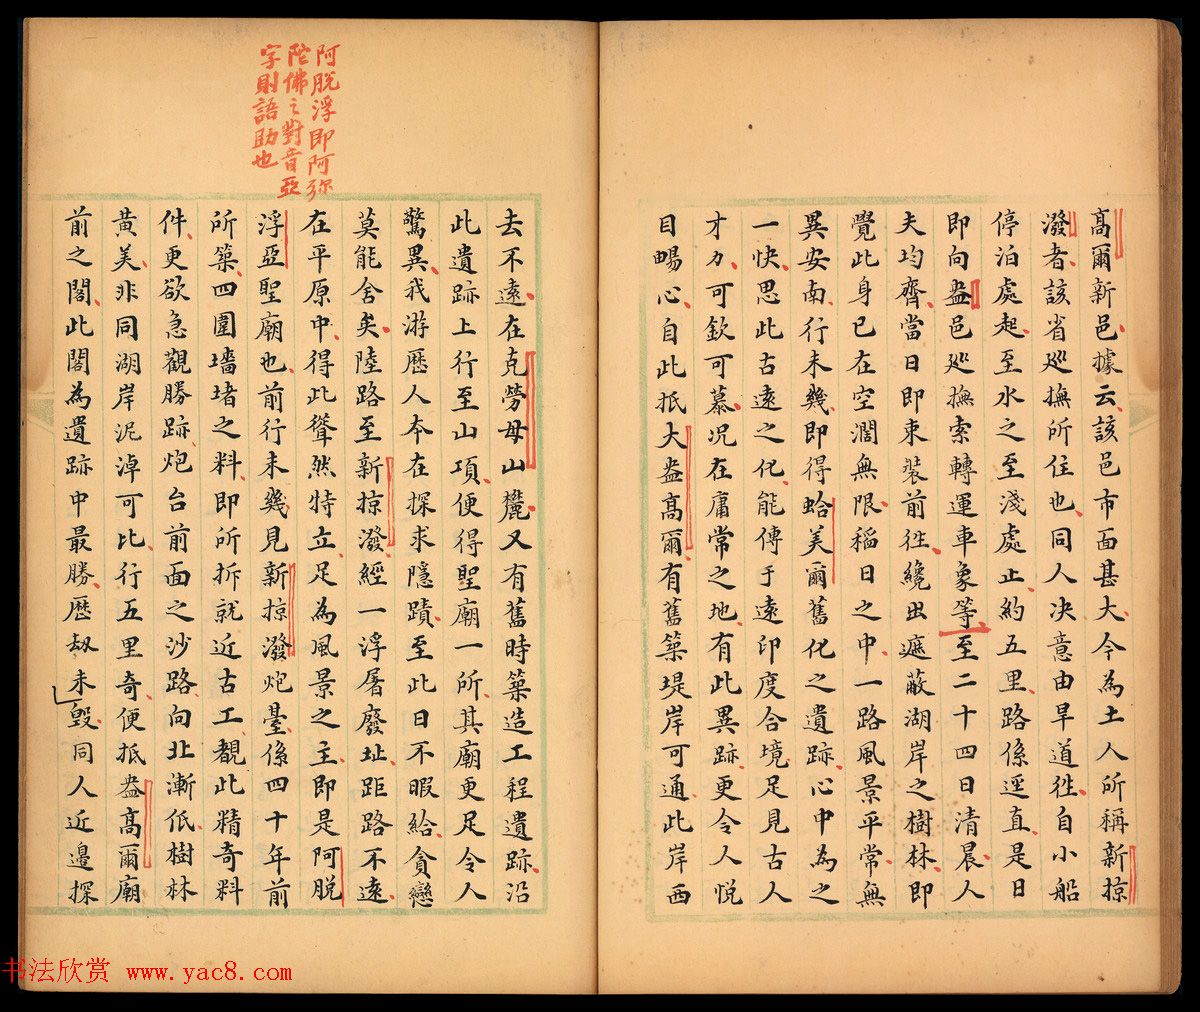 高爾新邑據云該邑市面甚大今為土人所稱新掠
潑者該省廵撫所住也同人决意由旱道徃自小船
停泊處起至水之至淺處止約五里路係逕直是日
即向盎邑廵撫索轉運車象等至二十四日清晨人
夫均齊當日即束裝前徃纔出遮蔽湖岸之樹林即
覺此身已在空濶無限稻日之中一路風景平常無
異安南行未幾即得蛤美爾舊化之遺跡心中為之
一快思此古遠之化能傳于遠印度合境足見古人
才力可欽可慕况在庸常之地有此異跡更令人悅
目暢心自此抵大盎高爾有舊築堤岸可通此岸西
阿脫浮即阿弥
陀佛之對音亞
字則語助也
去不遠在克勞母山麓又有舊時築造工程遺跡沿
此遺跡上行至山項便得聖廟一所其廟更足令人
驚異我游歷人夲在探求隱蹟至此日不暇給貪戀
莫能舍矣陸路至新掠潑經一浮屠廢址距路不遠
在平原中得此聳然特立足為風景之主即是阿脫
浮亞聖廟也前行未幾見新掠潑炮臺係四十年前
所築四圍墻堵之料即所拆就近古工覩此精奇料
件更欲急觀勝跡炮台前面之沙路向北漸低樹林
黃美非同湖岸泥淖可比行五里奇便抵盎高爾廟
前之閣此閣為遺跡中最勝歷刼未毁同人近邉探
书法欣赏 www.yac8.com